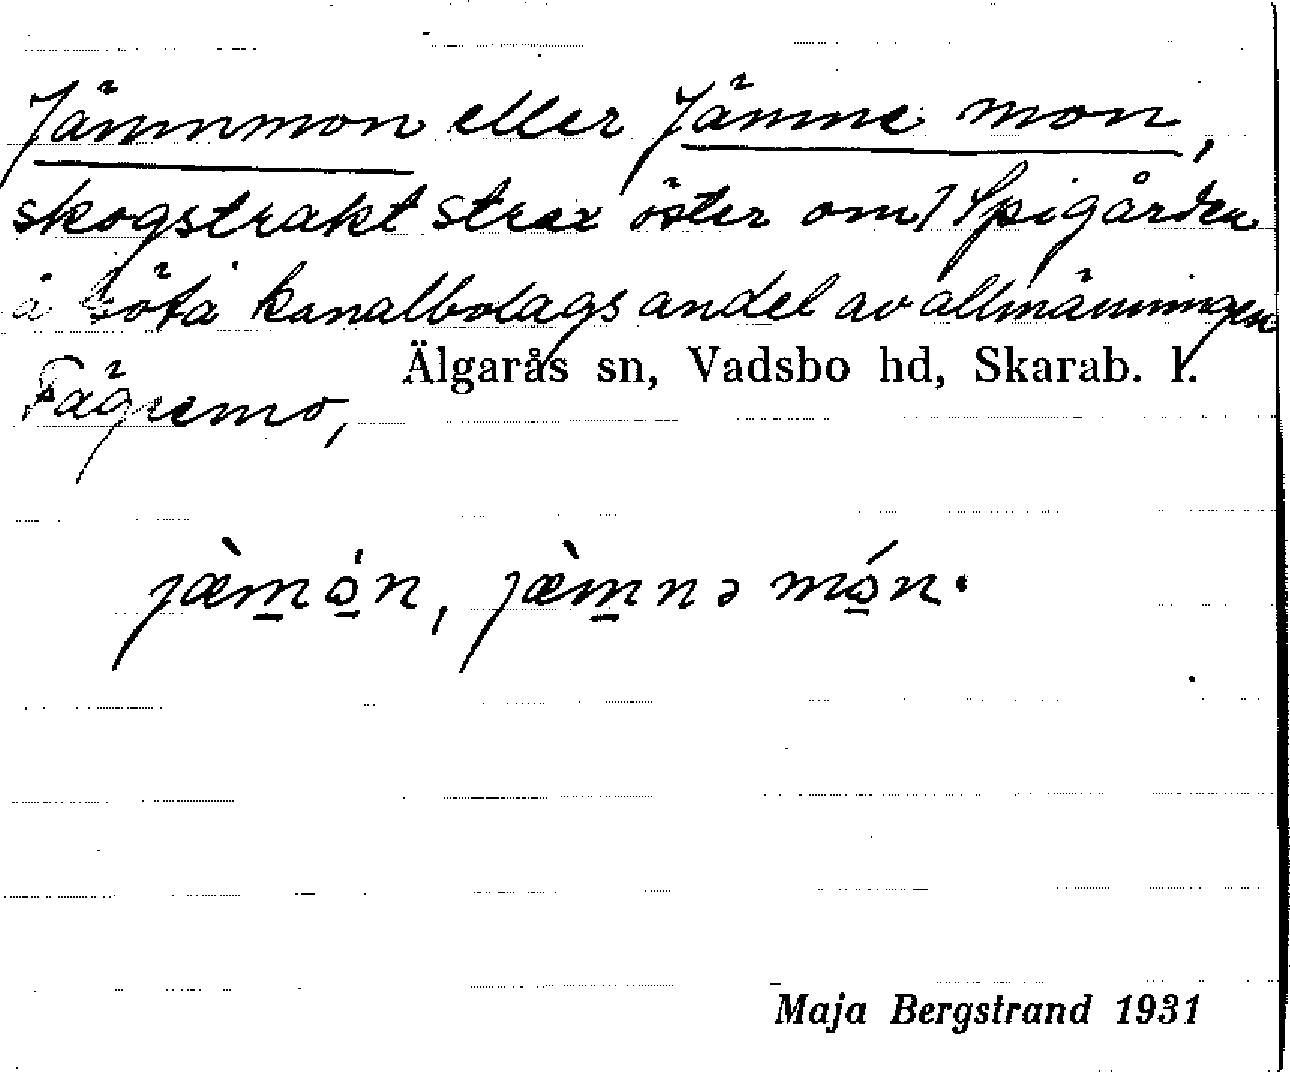 Jämnmon eller Jämne mon,
skogstrakt strax öster om Spigården
å Göta kanalbolags andel av allmänningen
Älgarås sn, Vadsbo hd, Skarab. l.
Fägremo,
jæ̀m̠ó̠n, jæ̀m̠nə mó̠n.
Maja Bergstrand 1931